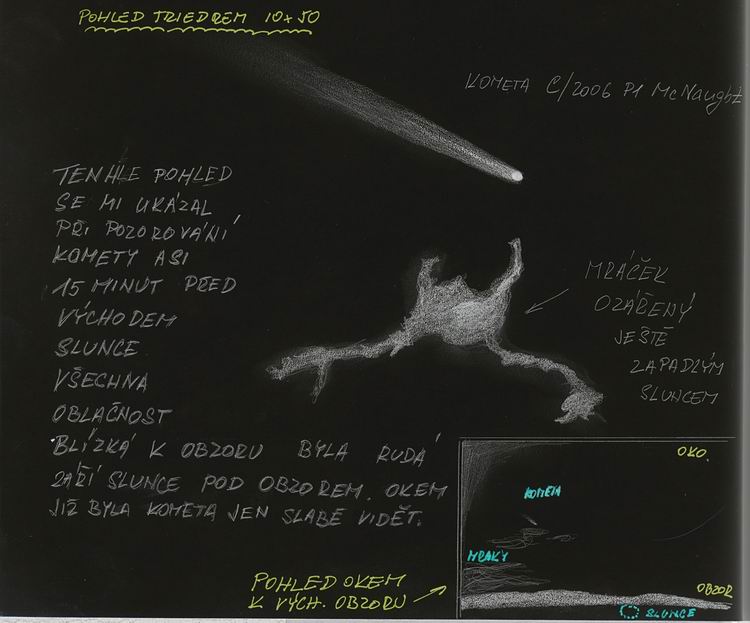 POHLED TRIEDREM 10x50
KOMETA C/2006 P1 McNaught
TENHLE POHLED
SE MI UKÁZAL
PŘI POZOROVÁNÍ
KOMETY ASI
15 MINUT PŘED
VÝCHODEM
SLUNCE
VŠECHNA
OBLAČNOST
BLÍZKÁ K OBZORU BYLA RUDÁ
ZÁŘÍ SLUNCE POD OBZOREM. OKEM
JIŽ BYLA KOMETA JEN SLABĚ VIDĚT.
MRÁČEK
OZÁŘENÝ
JEŠTĚ
ZAPADLÝM
SLUNCEM
POHLED OKEM
K VÝCH. OBZORU
OKO.
KOMETA
MRAKY
OBZOR
SLUNCE